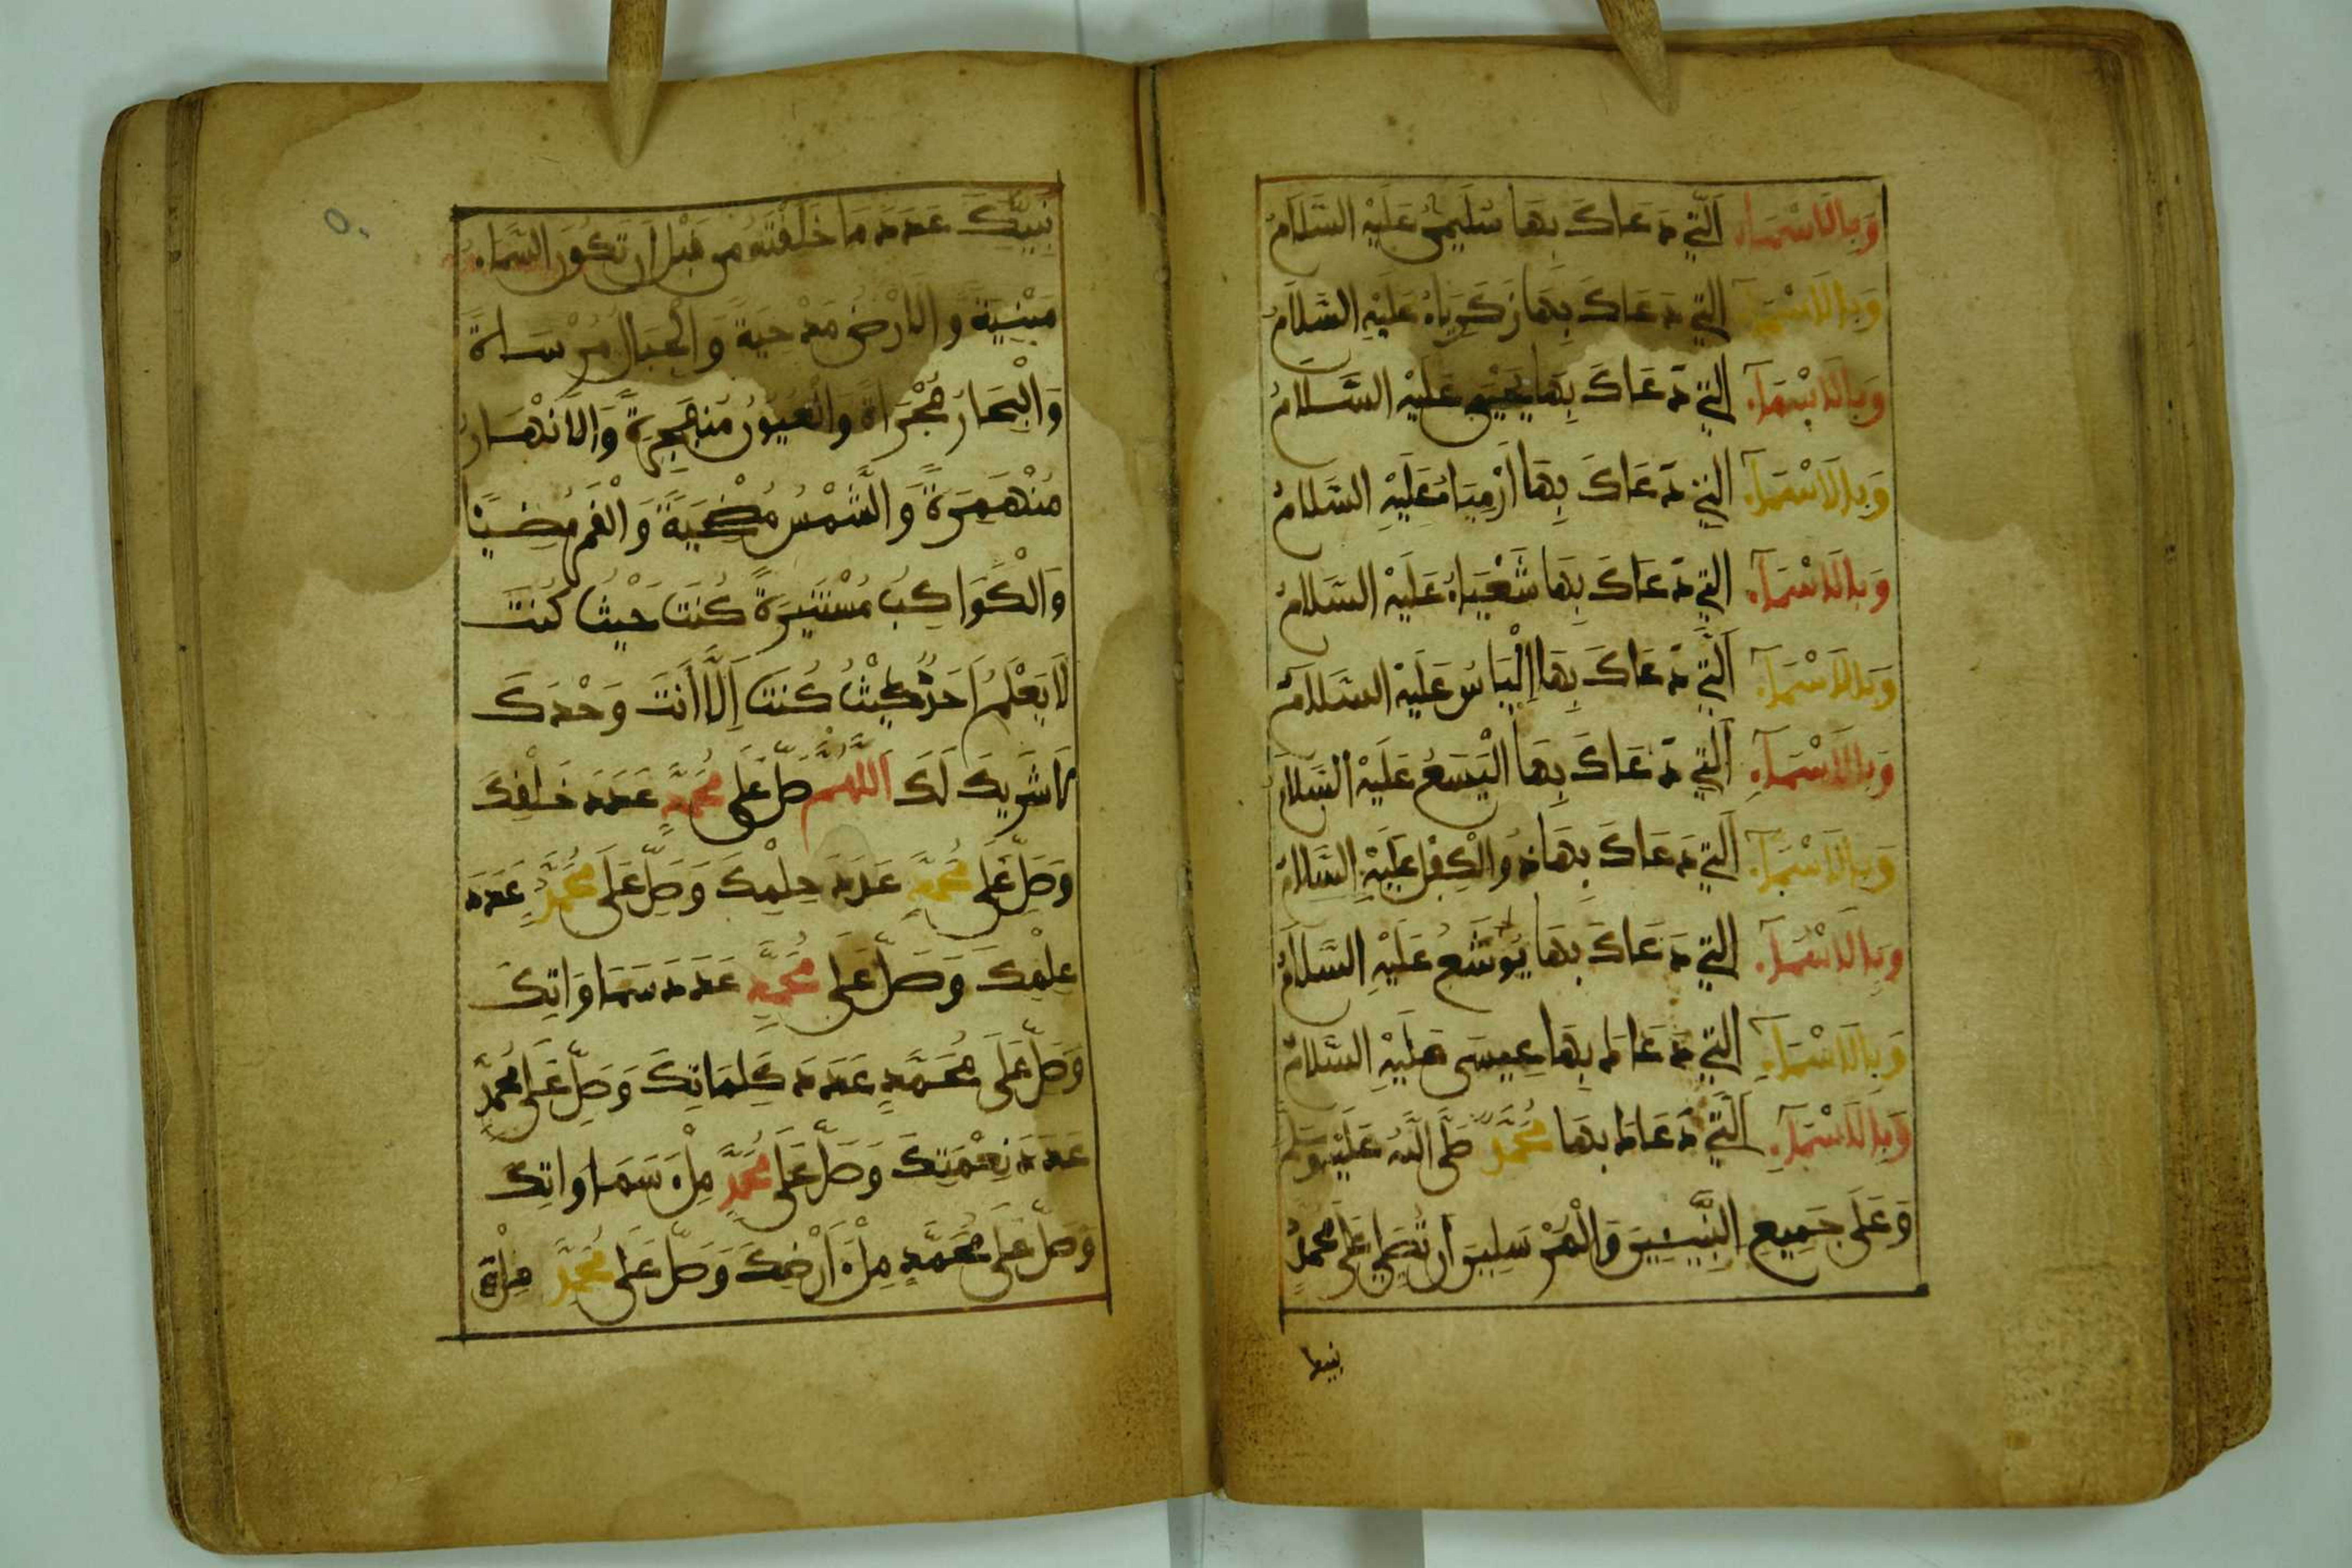 وَبِالَاسْمَاءِ اَلَّتِي دَعَاكَ بِهَا سُلَيْمٰنُ عَلَيْهِ السَّلَامُ
وَبِالَاسْمَاءِ الَّتِي دَعَاكَ بِهَا زَكَرِيَّاءُ عَلَيْهِ السَّلَامُ
وَبِالَاسْمَآءِ الَّتِي دَعَاكَ بِهَا يَحْيَى عَلَيْهِ السَّلَامُ
وَبِالَاسْمَآءِ الَّتِي دَعَاكَ بِهَا أَرْمِيَاءُ عَلَيْهِ السَّلَامُ
وَبِالَاسْمَآءِ الَّتِي دَعَاكَ بِهَا شَعْيَاءُ عَلَيْهِ السَّلَامُ
وَبِالَاسْمَآءِ الَّتِي دَعَاكَ بِهَا إِلْيَاسُ عَلَيْهِ السَّلَامُ
وَبِالَاسْمَآءِ الَّتِي دَعَاكَ بِهَا الْيَسَعُ عَلَيْهِ السَّلَامُ
وَبِالَاسْمَآءِ الَّتِي دَعَاكَ بِهَا ذُو الْكِفْلِ عَلَيْهِ السَّلَامُ
وَبِالَاسْمَآءِ الَّتِي دَعَاكَ بِهَا يُوشَعُ عَلَيْهِ السَّلَامُ
وَبِالَاسْمَآءِ الَّتِي دَعَاكَ بِهَا عِيسَى عَلَيْهِ السَّلَامُ
وَبِالَاسْمَآءِ الَّتِي دَعَاكَ بِهَا مُحَمَّدٌ صَلَّى اللَّهُ عَلَيْهِ وَسَلَّمَ
وَعَلَى جَمِيعِ النَّبِيِّينَ وَالْمُرْسَلِينَ أَن تُصَلِّيَ عَلَى مُحَمَّدٍ
نبيك
نَبِيِّكَ عَدَدَ مَا خَلَقْتَهُ مِن قَبْلِ أَن تَكُونَ السَّمَاءُ
مَبْنِيَّةً وَالَارْضُ مَدْحِيَّةً وَالْجِبَالُ مُرْسَاةً
وَالْبِحَارُ مُجْرَاةً وَالْعُيُونُ مُنْفَجِرَةً وَالَانْهَارُ
مُنْهَمِرَةً وَالشَّمْسُ مُضْحِيَةً وَالْقَمَرُ مُضِيئًا
وَالْكَوَاكِبُ مُسْتَنِيرَةً كُنتَ حَيْثُ كُنتَ
لَا يَعْلَمُ أَحَدٌ حَيْثُ كُنتَ إِلَّا أَنتَ وَحْدَكَ
لَا شَرِيكَ لَكَ اَللَّهُمَّ صَلِّ عَلَى مُحَمَّدٍ عَدَدَ خَلْقِكَ
وَصَلِّ عَلَى مُحَمَّدٍ عَدَدَ حِلْمِكَ وَصَلِّ عَلَى مُحَمَّدٍ عَدَدَ
عِلْمِكَ وَصَلِّ عَلَى مُحَمَّدٍ عَدَدَ سَمَاوَاتِكَ
وَصَلِّ عَلَى مُحَمَّدٍ عَدَدَ كَلِمَاتِكَ وَصَلِّ عَلَى مُحَمَّدٍ
عَدَدَ نِعْمَتِكَ وَصَلِّ عَلَى مُحَمَّدٍ مِلْءَ سَمَاوَاتِكَ
وَصَلِّ عَلَى مُحَمَّدٍ مِلْءَ أَرْضِكَ وَصَلِّ عَلَى مُحَمَّدٍ مِلْءَ